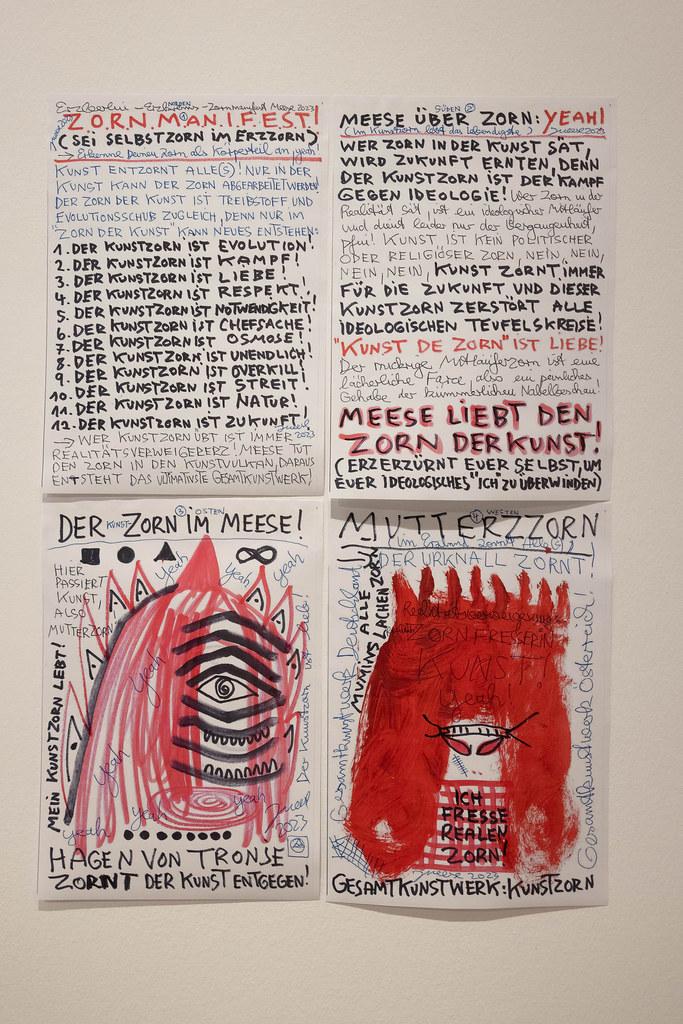 Erzberlin – Erzbrems – Zornmanifest Meese 2023
NORDEN
1
Z.O.R.N.M.A.N.I.F.E.S.T!
(SEI SELBSTZORN IM ERZZORN)
→ Erkenne Deinen Zorn als Körperteil an, yeah!
KUNST ENTZORNT ALLE(S)! NUR IN DER
KUNST KANN DER ZORN ABGEARBEITET WERDEN!
DER ZORN DER KUNST IST TREIBSTOFF UND
EVOLUTIONSSCHUB ZUGLEICH, DENN NUR IM
"ZORN DER KUNST" KANN NEUES ENTSTEHEN:
1. DER KUNSTZORN IST EVOLUTION!
2. DER KUNSTZORN IST KAMPF!
3. DER KUNSTZORN IST LIEBE!
4. DER KUNSTZORN IST RESPEKT!
5. DER KUNSTZORN IST NOTWENDIGKEIT!
6. DER KUNSTZORN IST CHEFSACHE!
7. DER KUNSTZORN IST OSMOSE!
8. DER KUNSTZORN IST UNENDLICH!
9. DER KUNSTZORN IST OVERKILL!
10. DER KUNSTZORN IST STREIT!
11. DER KUNSTZORN IST NATUR!
12. DER KUNSTZORN IST ZUKUNFT!
Meese 2023
→ WER KUNSTZORN ÜBT IST IMMER
REALITÄTSVERWEIGERERZ! MEESE TUT
DEN ZORN IN DEN KUNSTVULKAN, DARAUS
ENTSTEHT DAS ULTIMATIVSTE GESAMTKUNSTWERK!
SÜDEN 2
MEESE ÜBER ZORN: YEAH!
(Im Kunstzorn lebt das Lebendigste) Meese 2023
WER ZORN IN DER KUNST SÄT,
WIRD ZUKUNFT ERNTEN, DENN
DER KUNSTZORN IST DER KAMPF
GEGEN IDEOLOGIE! Wer Zorn in der
Realität sät, ist ein ideologischer Mitläufer
und dient leider nur der Vergangenheit,
Pfui! KUNST IST KEIN POLITISCHER
ODER RELIGIÖSER ZORN, NEIN, NEIN,
NEIN, NEIN, KUNST ZÖRNT IMMER
FÜR DIE ZUKUNFT UND DIESER
KUNSTZORN ZERSTÖRT ALLE
IDEOLOGISCHEN TEUFELSKREISE!
"KUNST DE ZORN" IST LIEBE!
Der mickrige Mitläuferzorn ist eine
lächerliche Farce, also ein peinliches
Gehabe der kümmerlichen Nabelbeschau!
MEESE LIEBT DEN
ZORN DER KUNST!
(ERZERZÜRNT EUER SELBST, UM
EUER IDEOLOGISCHES "ICH" ZU ÜBERWINDEN)
3 OSTEN
DER KUNST-ZORN IM MEESE!
HIER
PASSIERT
KUNST,
ALSO
MUTTERZORN
yeah
yeah
yeah
yeah
yeah
yeah
yeah
yeah
yeah
MEIN KUNSTZORN LEBT!
Der Kunstzorn lebt
Meese
2023
HAGEN VON TRONJE
ZORNT DER KUNST ENTGEGEN!
4 WESTEN
MUTTERZZORN
DER URKNALL ZORNT!
MUMINS LACHEN ZORN
ALLE
Gesamtkunstwerk Deutschland!
Gesamtkunstwerk Österreich!
ZORNFRESSERIN
KUNST!
Yeah!
ICH
FRESSE
REALEN
ZORN!
Meese 2023
GESAMTKUNSTWERK: KUNSTZORN